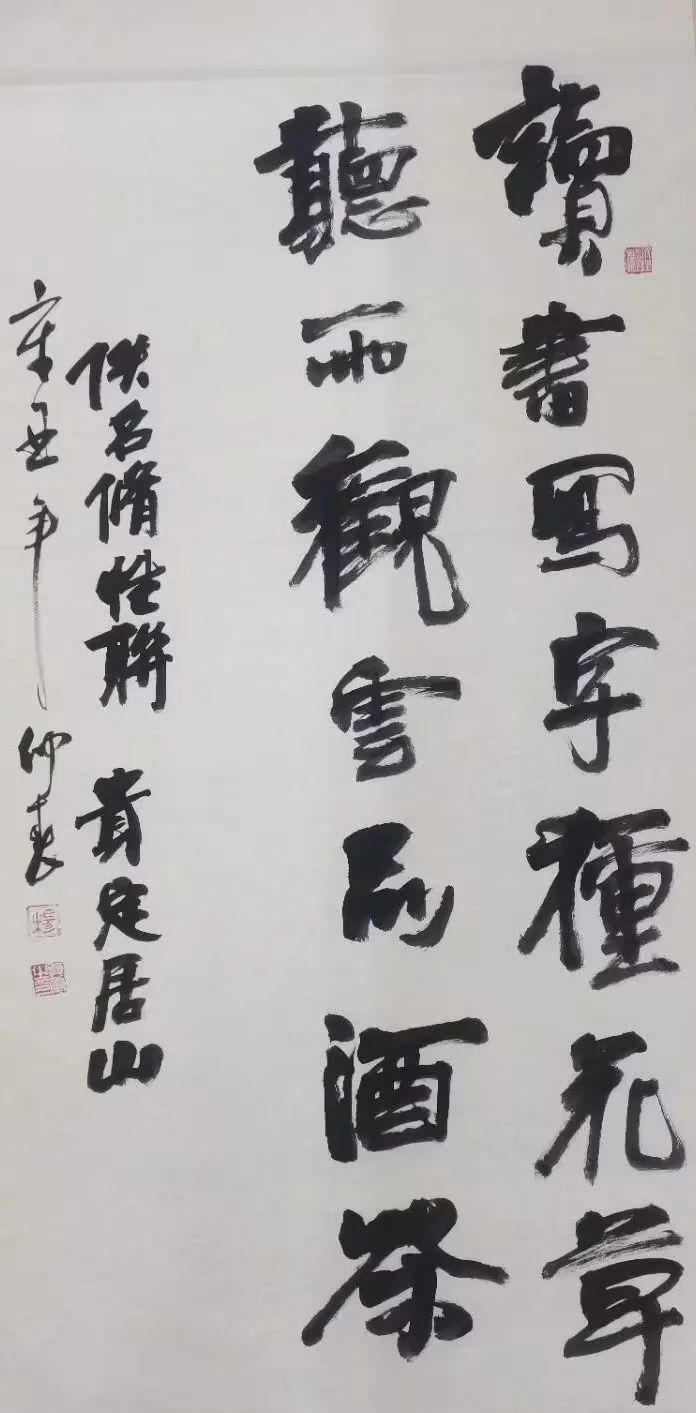 讀書寫字種花草
聽雨觀雲品酒茶
佚名脩性聯 貴定居山
辛丑年仲